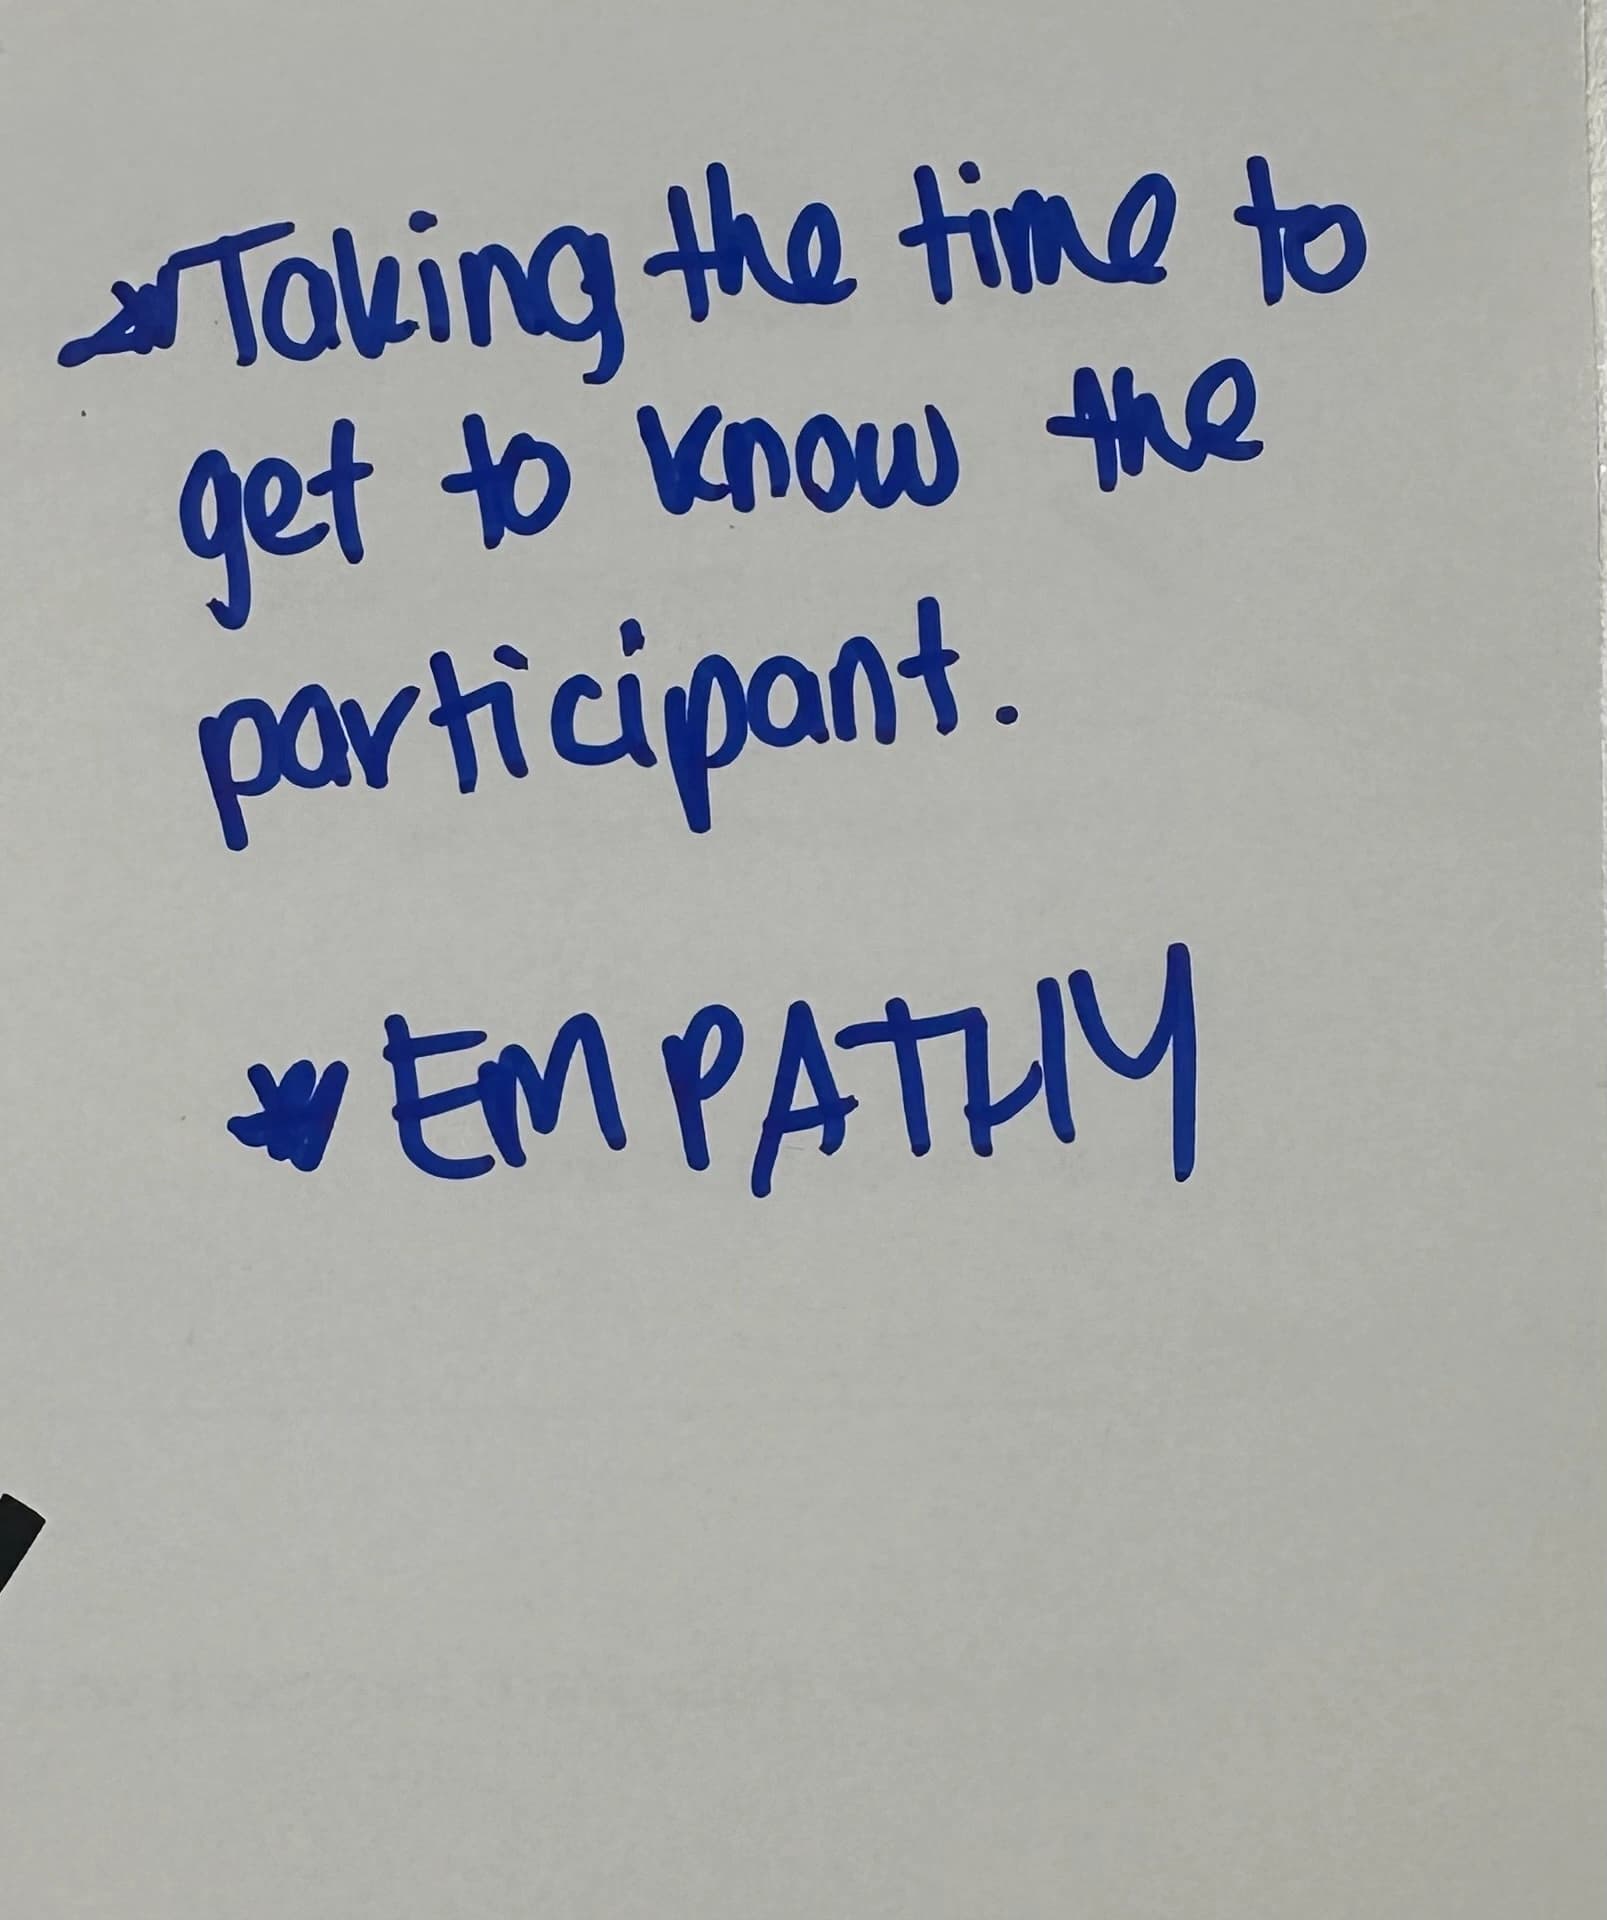 * Taking the time to
get to know the
participant.
* EMPATHY